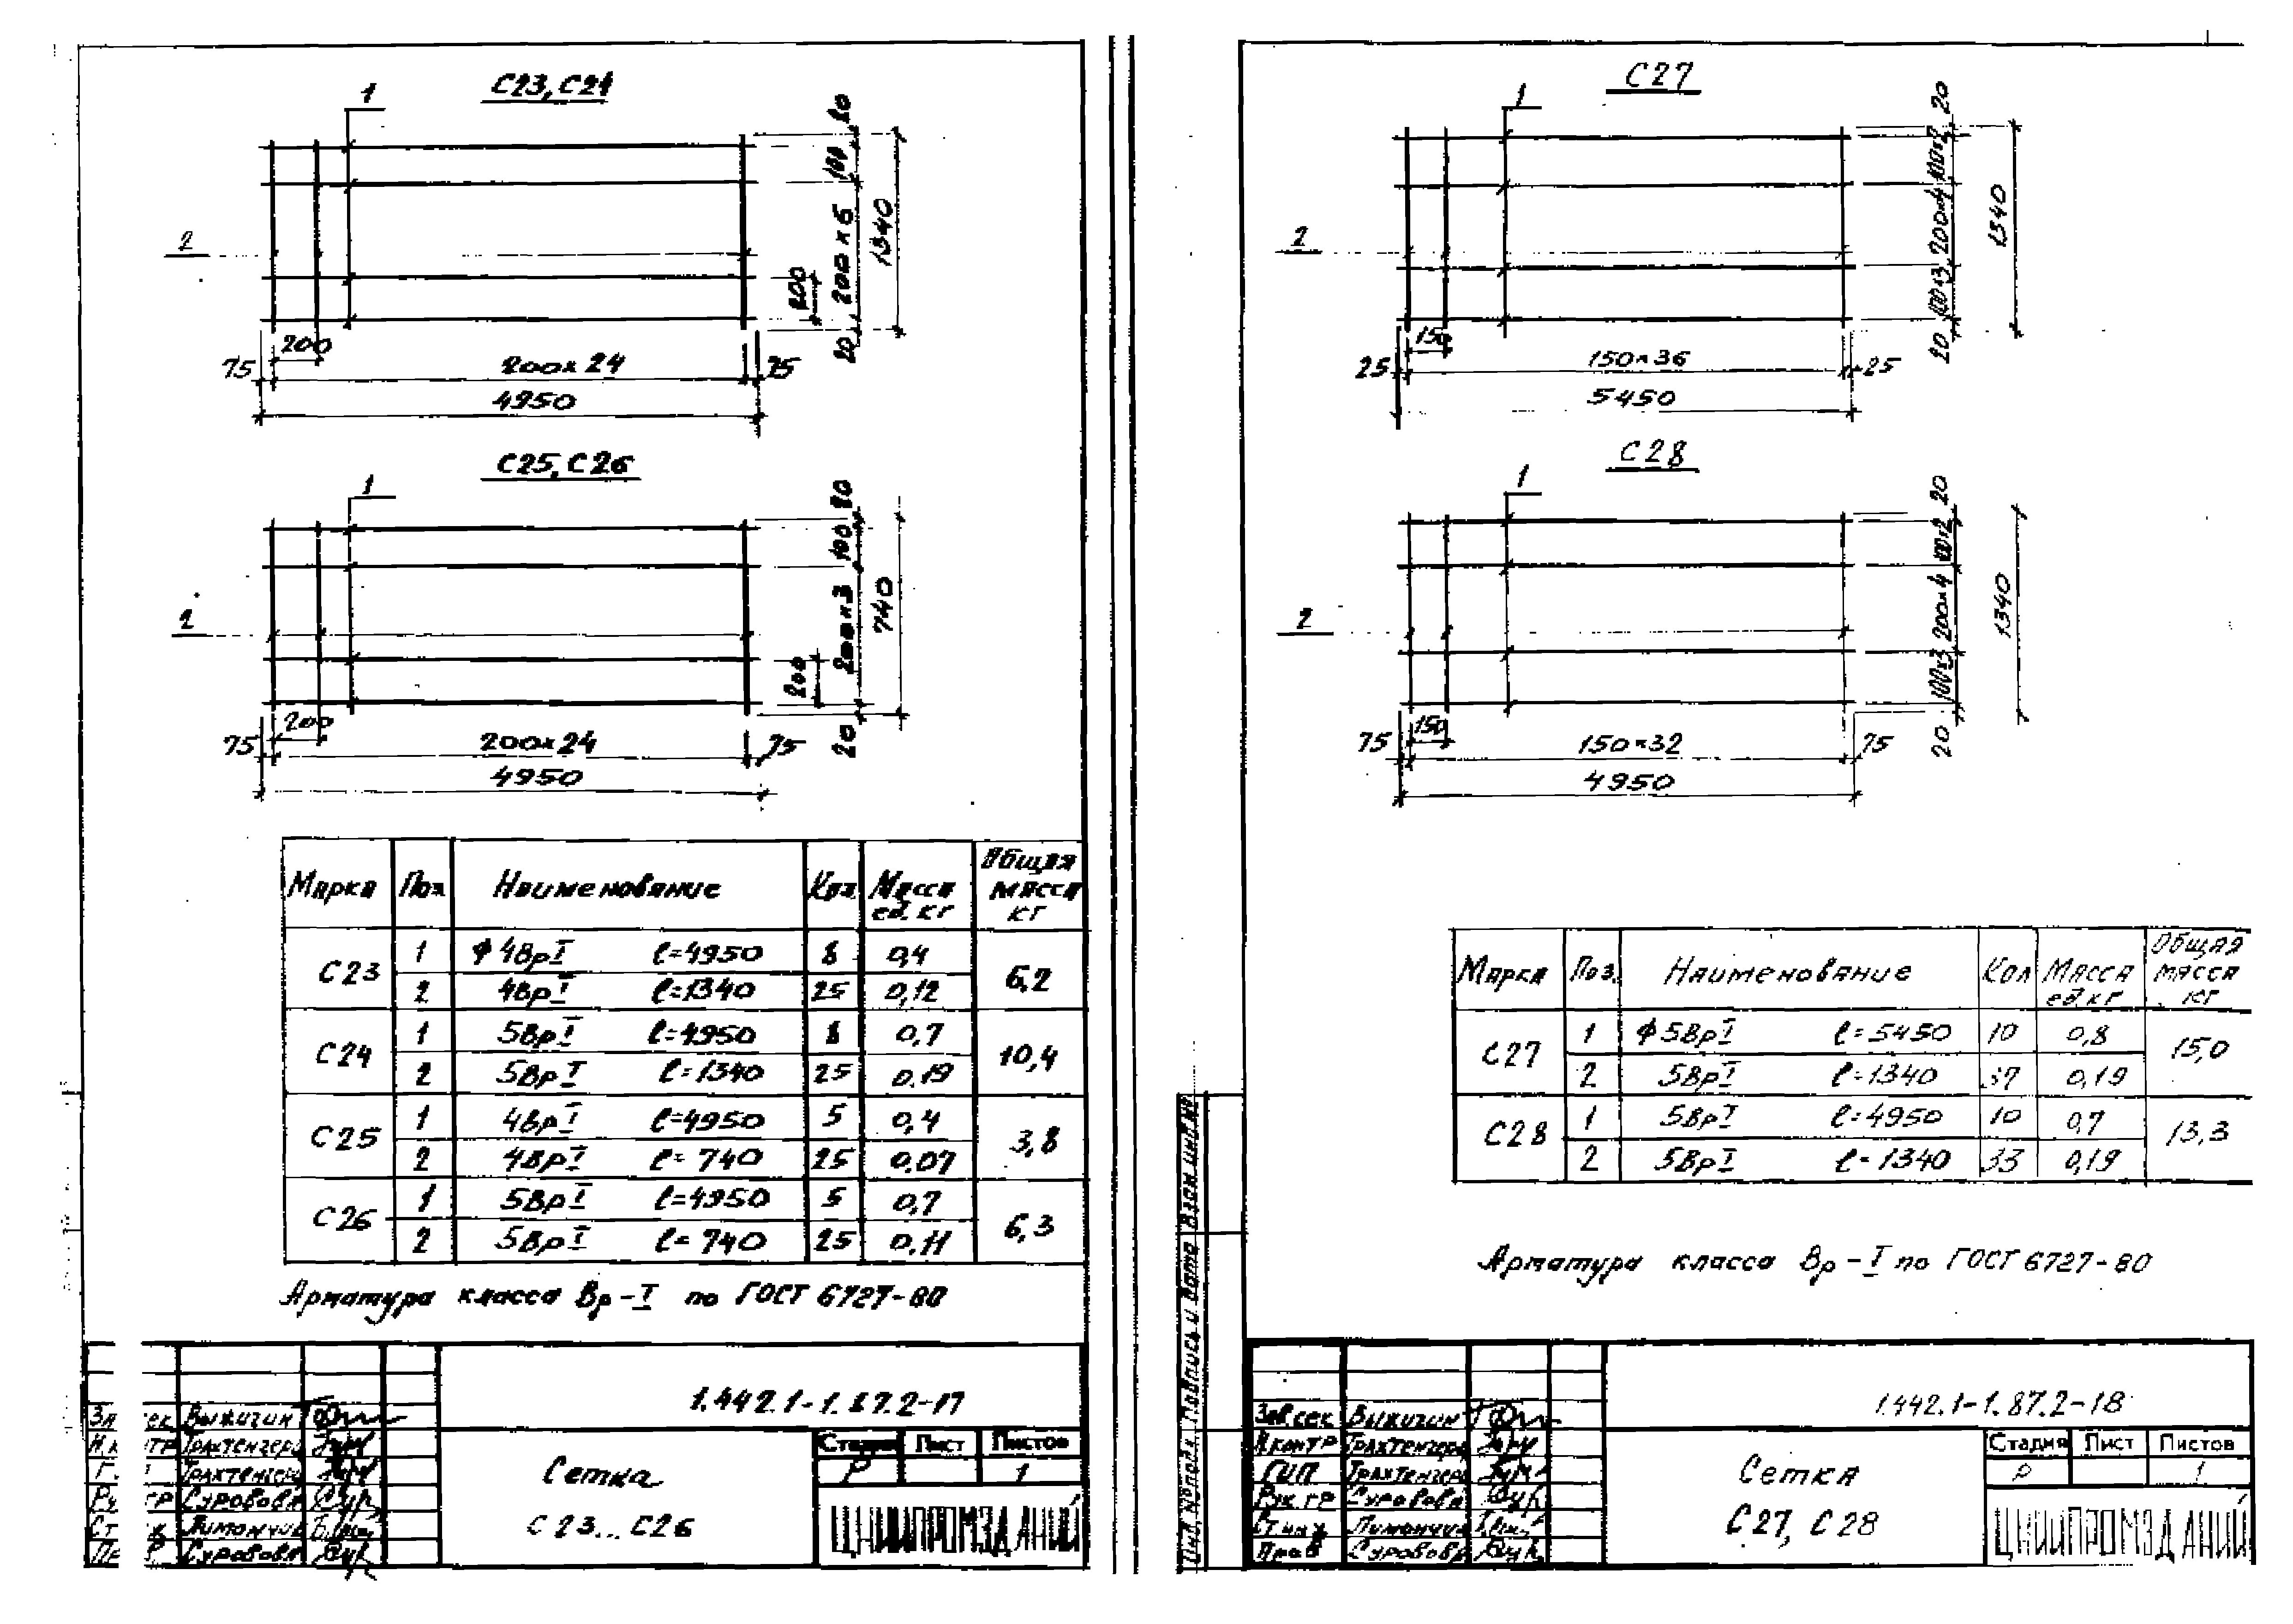 С23, С24
1
2
20
100
200×6
1340
200
20
75
200
200×24
75
4950
С25, С26
1
2
20
100
200×3
740
200
20
75
200
200×24
75
4950
Марка Поз Наименование Кол Масса ед. кг Общая масса кг
С23 1 ф 4ВрI ℓ=4950 8 0,4 6,2
2 4ВрI ℓ=1340 25 0,12
С24 1 5ВрI ℓ=4950 8 0,7 10,4
2 5ВрI ℓ=1340 25 0,19
С25 1 4ВрI ℓ=4950 5 0,4 3,8
2 4ВрI ℓ=740 25 0,07
С26 1 5ВрI ℓ=4950 5 0,7 6,3
2 5ВрI ℓ=740 25 0,11
Арматура класса Вр-I по ГОСТ 6727-80
1.442.1-1.87.2-17
Выжигин
Трахтенгерц
Трахтенгерц
Суровова
Лимончик
Суровова
Сетка
С23...С26
Стадия Лист Листов
Р 1
ЦНИИПРОМЗДАНИЙ
С27
1
2
20
100×2
200×4
100×3
20
1340
25
150
150×36
25
5450
С28
1
2
20
100×2
200×4
100×3
20
1340
75
150
150×32
75
4950
Марка Поз. Наименование Кол Масса ед. кг Общая масса кг
С27 1 ф 5ВрI ℓ=5450 10 0,8 15,0
2 5ВрI ℓ=1340 37 0,19
С28 1 5ВрI ℓ=4950 10 0,7 13,3
2 5ВрI ℓ=1340 33 0,19
Арматура класса Вр-I по ГОСТ 6727-80
Инв.№подл. Подпись и дата Взам.инв.№
1.442.1-1.87.2-18
Зав.сек Выжигин
Н.контр Трахтенгерц
ГИП Трахтенгерц
Рук.гр Суровова
Ст.инж Лимончик
Пров Суровова
Сетка
С27, С28
Стадия Лист Листов
Р 1
ЦНИИПРОМЗДАНИЙ